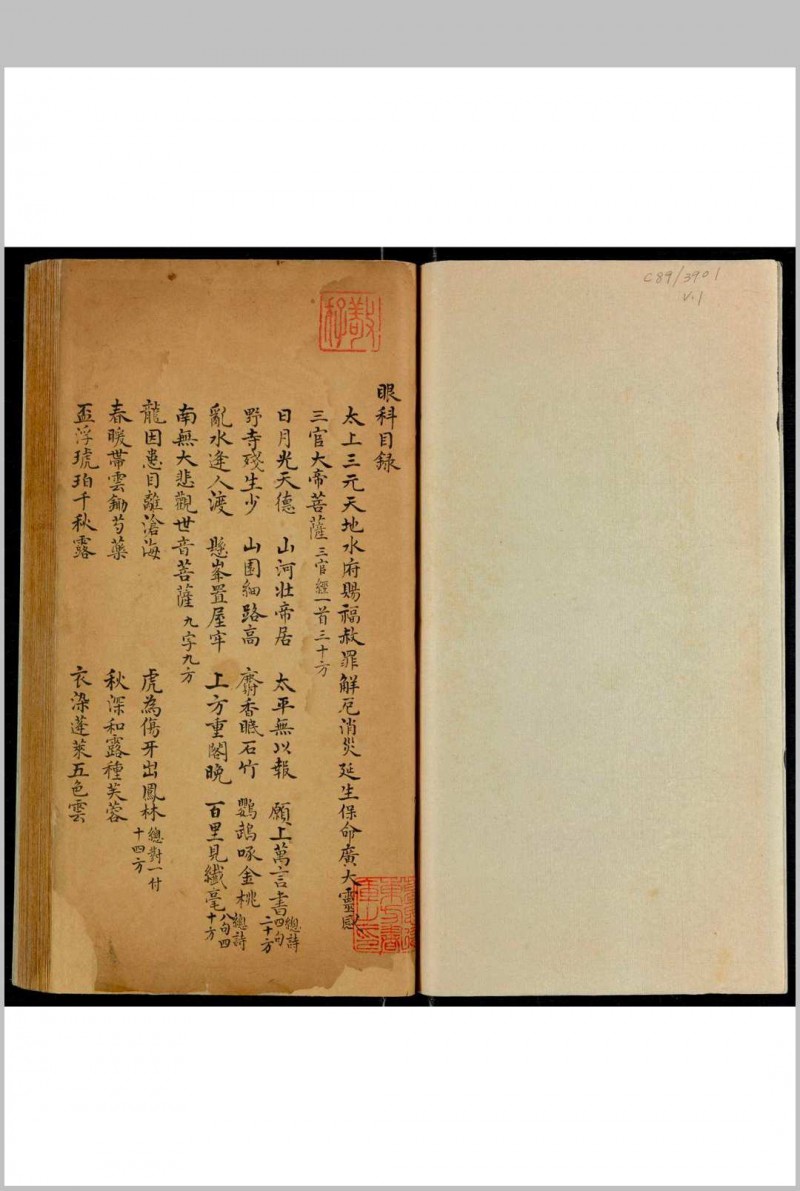 C89/3901
V.1
眼科目錄
太上三元天地水府賜福赦罪解厄消災延生保命廣大靈感
三官大帝菩薩 三官經一首三十方
日月光天德 山河壯帝居 太平無以報 願上萬言書 總詩四句二十方
野寺殘生少 山園細路高 麝香眠石竹 鸚鵡啄金桃
亂水逢人渡 懸峯置屋牢 上方重閣晚 百里見纖毫 總詩八句四十方
南無大悲觀世音菩薩 九字九方
龍因患目離滄海 虎為傷牙出鳳林 總對一付十四方
春暖帶雲鋤芍藥 秋深和露種芙蓉
盃浮琥珀千秋露 衣染蓬萊五色雲